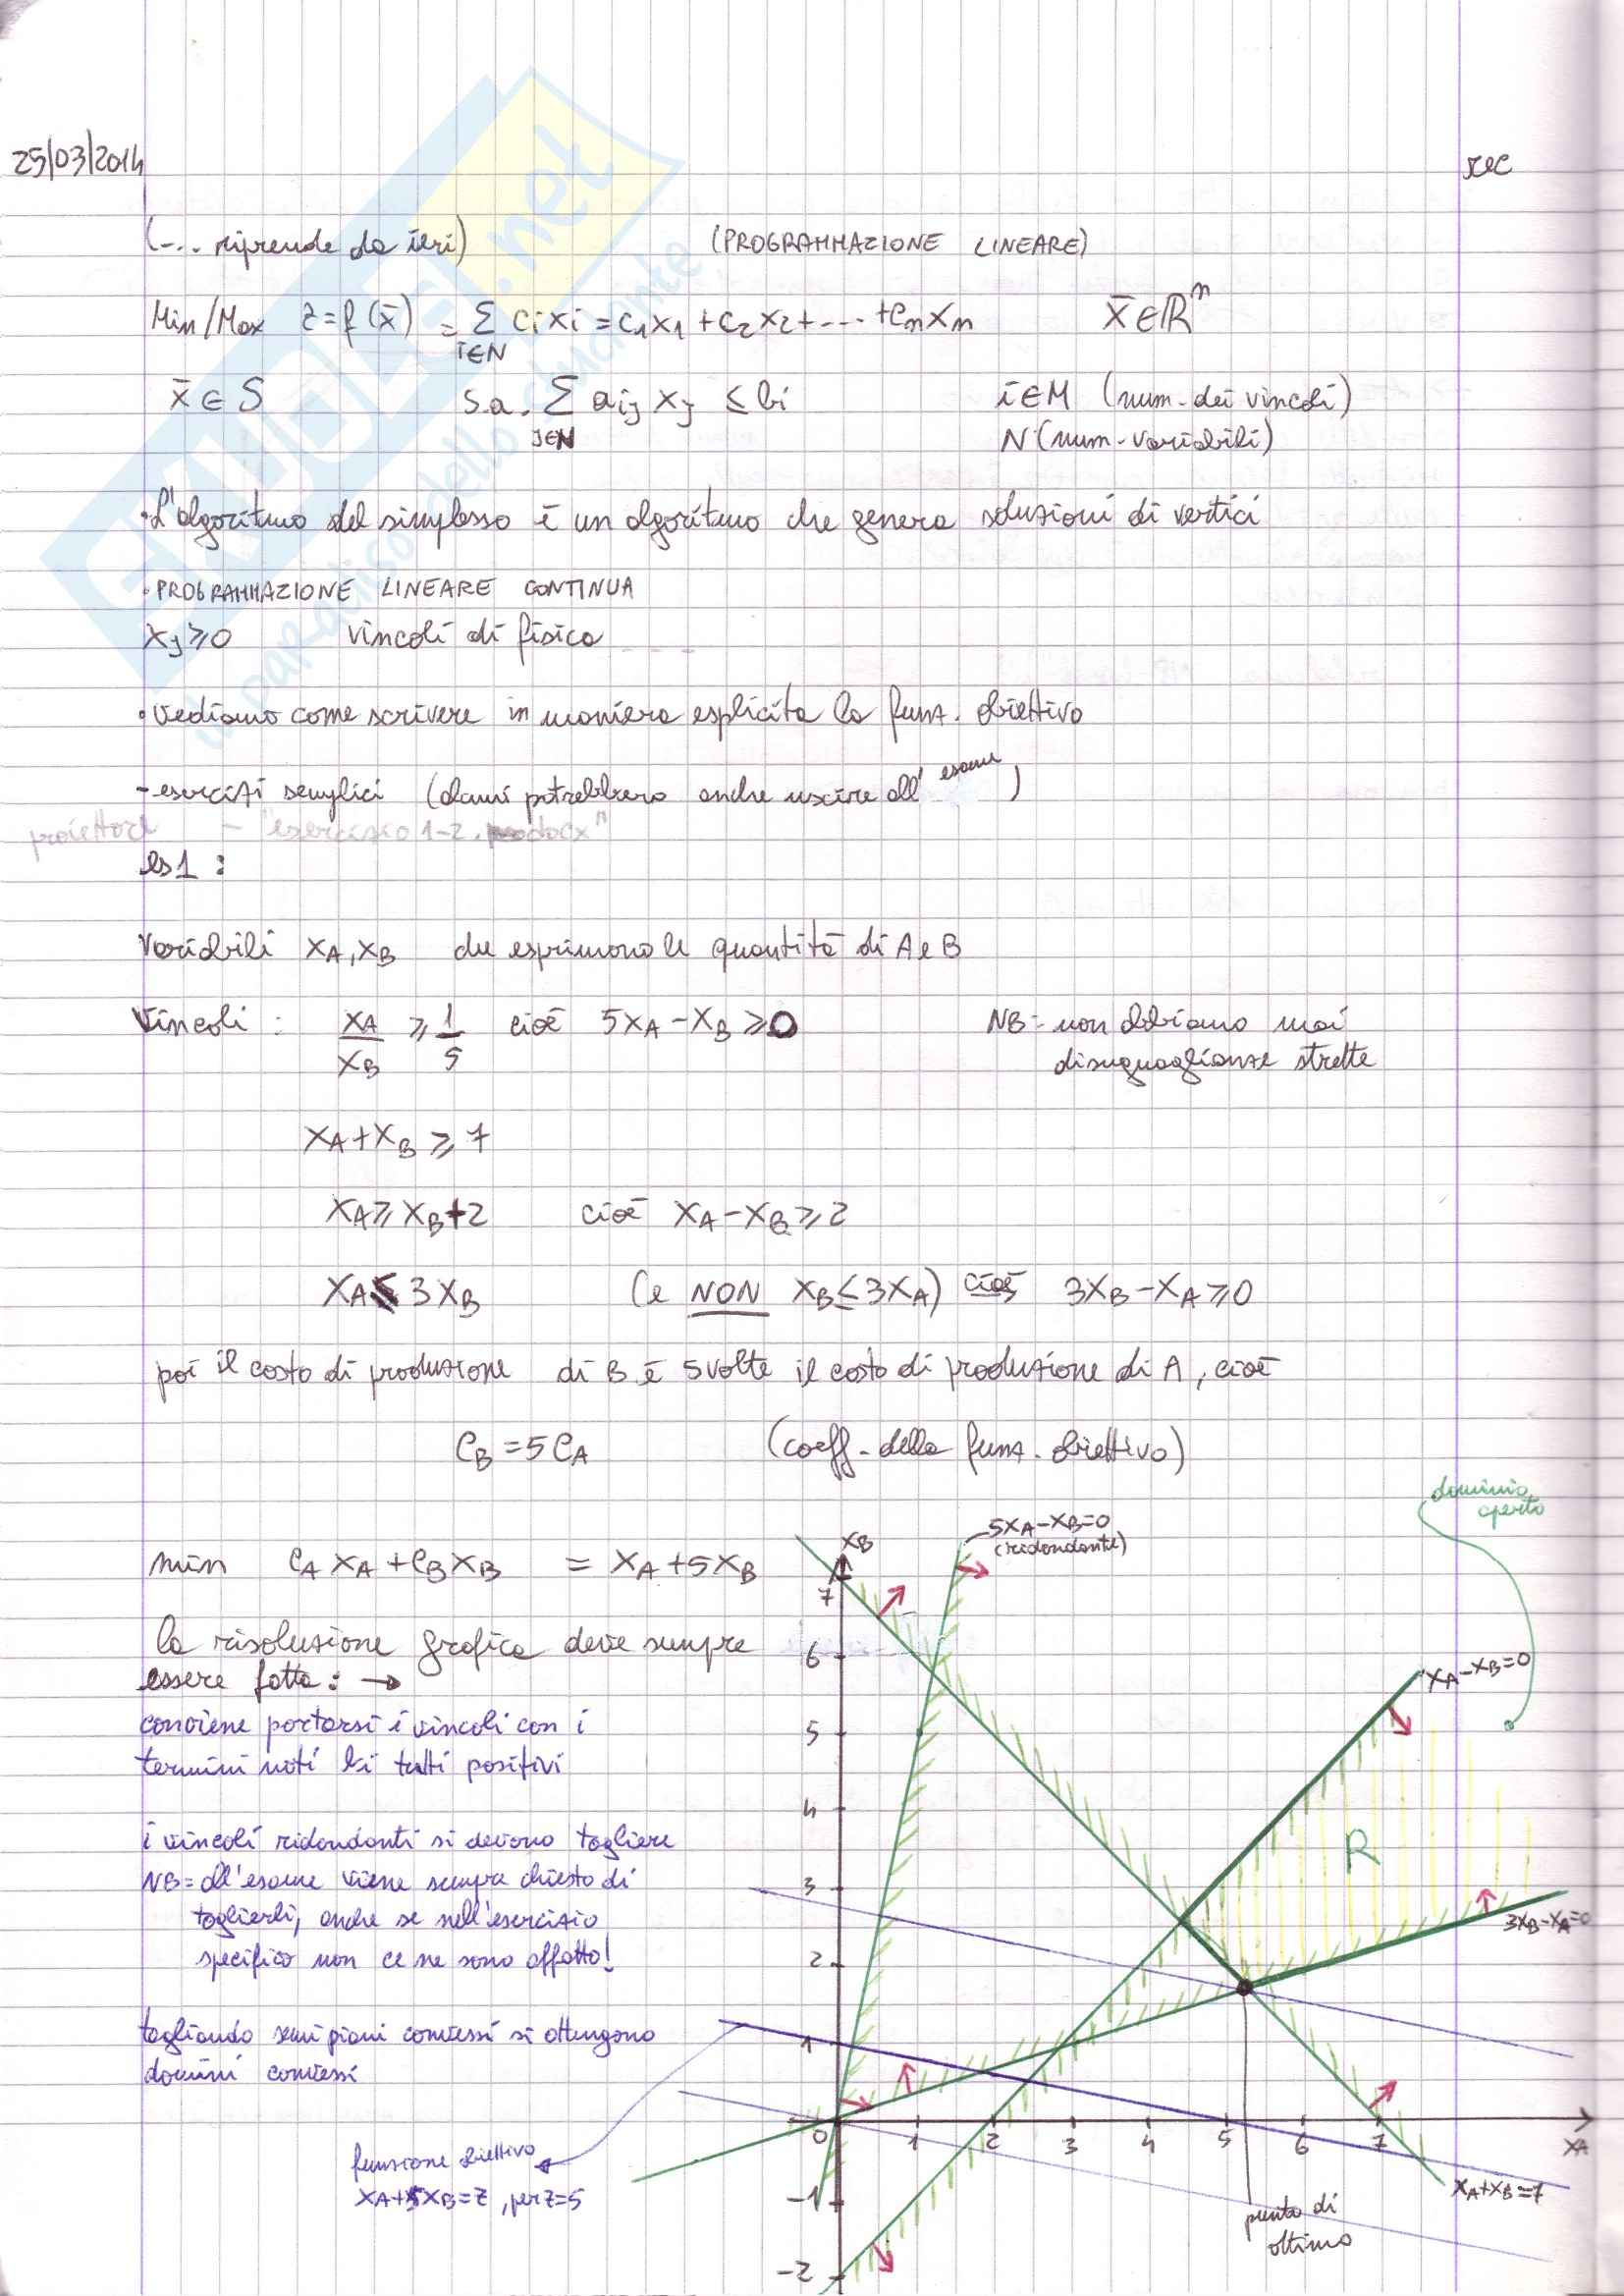 25/03/2014
rec
(... riprende da ieri) (PROGRAMMAZIONE LINEARE)
Min/Max z=f(x̄) = Σ cixi = c1x1 + c2x2 + ... + cnxn x̄∈ℝⁿ
i∈N
x̄ ∈ S s.a. Σ aij xj ≤ bi i∈M (num. dei vincoli)
j∈N N (num. variabili)
·L'algoritmo del simplesso è un algoritmo che genera soluzioni di vertici
·PROGRAMMAZIONE LINEARE CONTINUA
xj≥0 vincoli di fisica
·vediamo come scrivere in maniera esplicita la funz. obiettivo
-esercizi semplici (alcuni potrebbero anche uscire all' esame)
proiettore - "esercizio 1-2.docx"
es1:
Variabili xA, xB che esprimono le quantità di A e B
Vincoli: xA/xB ≥ 1/5 cioè 5xA-xB≥0 NB: non abbiamo mai
disuguaglianze strette
xA+xB ≥ 7
xA≥xB+2 cioè xA-xB≥2
xA≤3xB (e NON xB≤3xA) cioè 3xB-xA≥0
poi il costo di produzione di B è 5 volte il costo di produzione di A, cioè
CB=5CA (coeff. della funz. obiettivo)
min CAxA+CBxB = xA+5xB
la risoluzione grafica deve sempre
essere fatta: →
conviene portarsi i vincoli con i
termini noti bi tutti positivi
i vincoli ridondanti si devono togliere
NB= all'esame viene sempre chiesto di
toglierli, anche se nell'esercizio
specifico non ce ne sono affatto!
tagliando semipiani convessi si ottengono
domini convessi
funzione obiettivo
xA+5xB=z, per z=5
dominio
aperto
5xA-xB=0
(ridondante)
xB
7
6
5
4
3
2
1
0
-1
-2
1 2 3 4 5 6 7
xA
xA-xB=0
R
3xB-xA=0
xA+xB=7
punto di
ottimo
SKUOLA.net
il paradiso dello studente